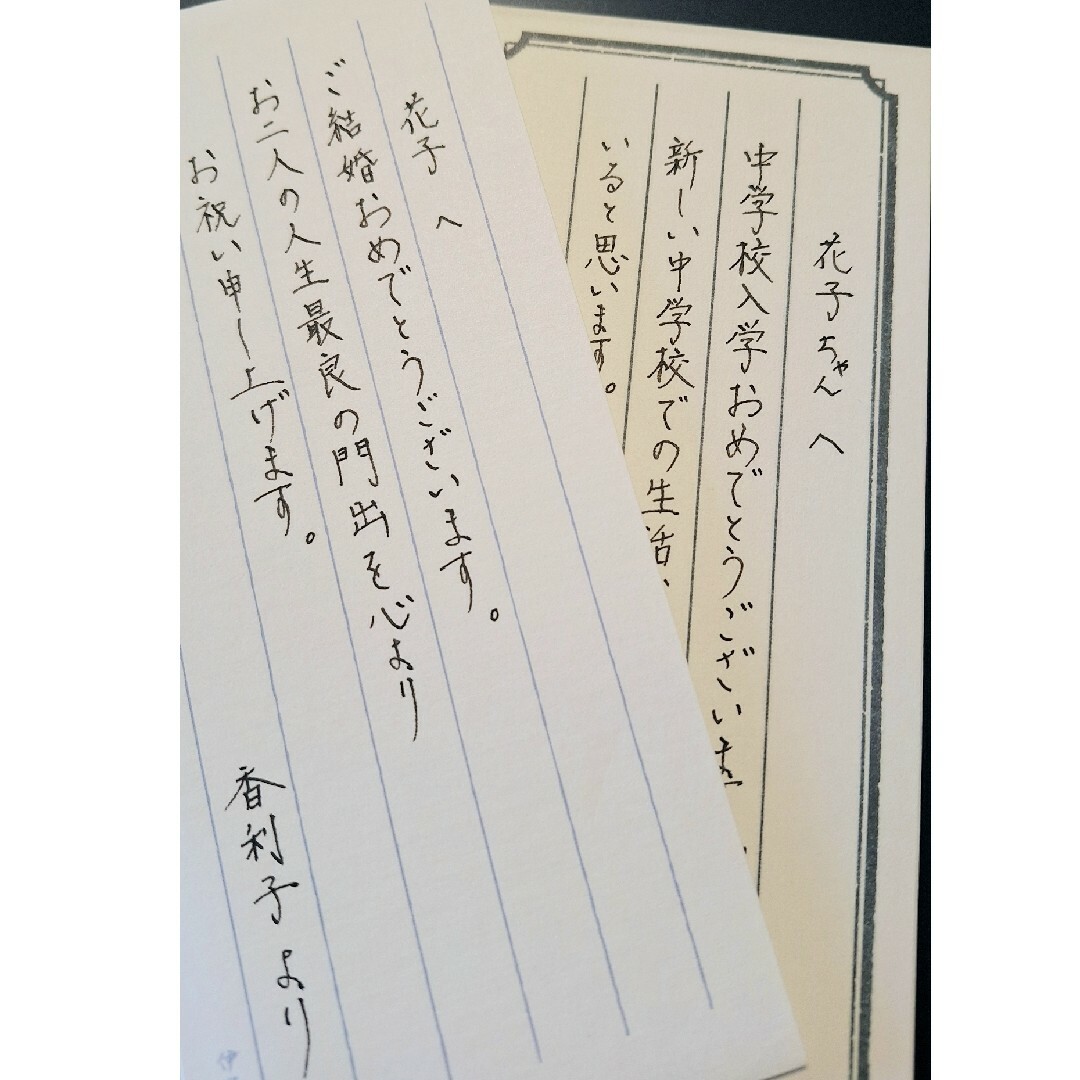 花子ちゃんへ
中学校入学おめでとうございま
新しい中学校での生活、
いると思います。
花子へ
ご結婚おめでとうございます。
お二人の人生最良の門出を心より
お祝い申し上げます。
香利子より